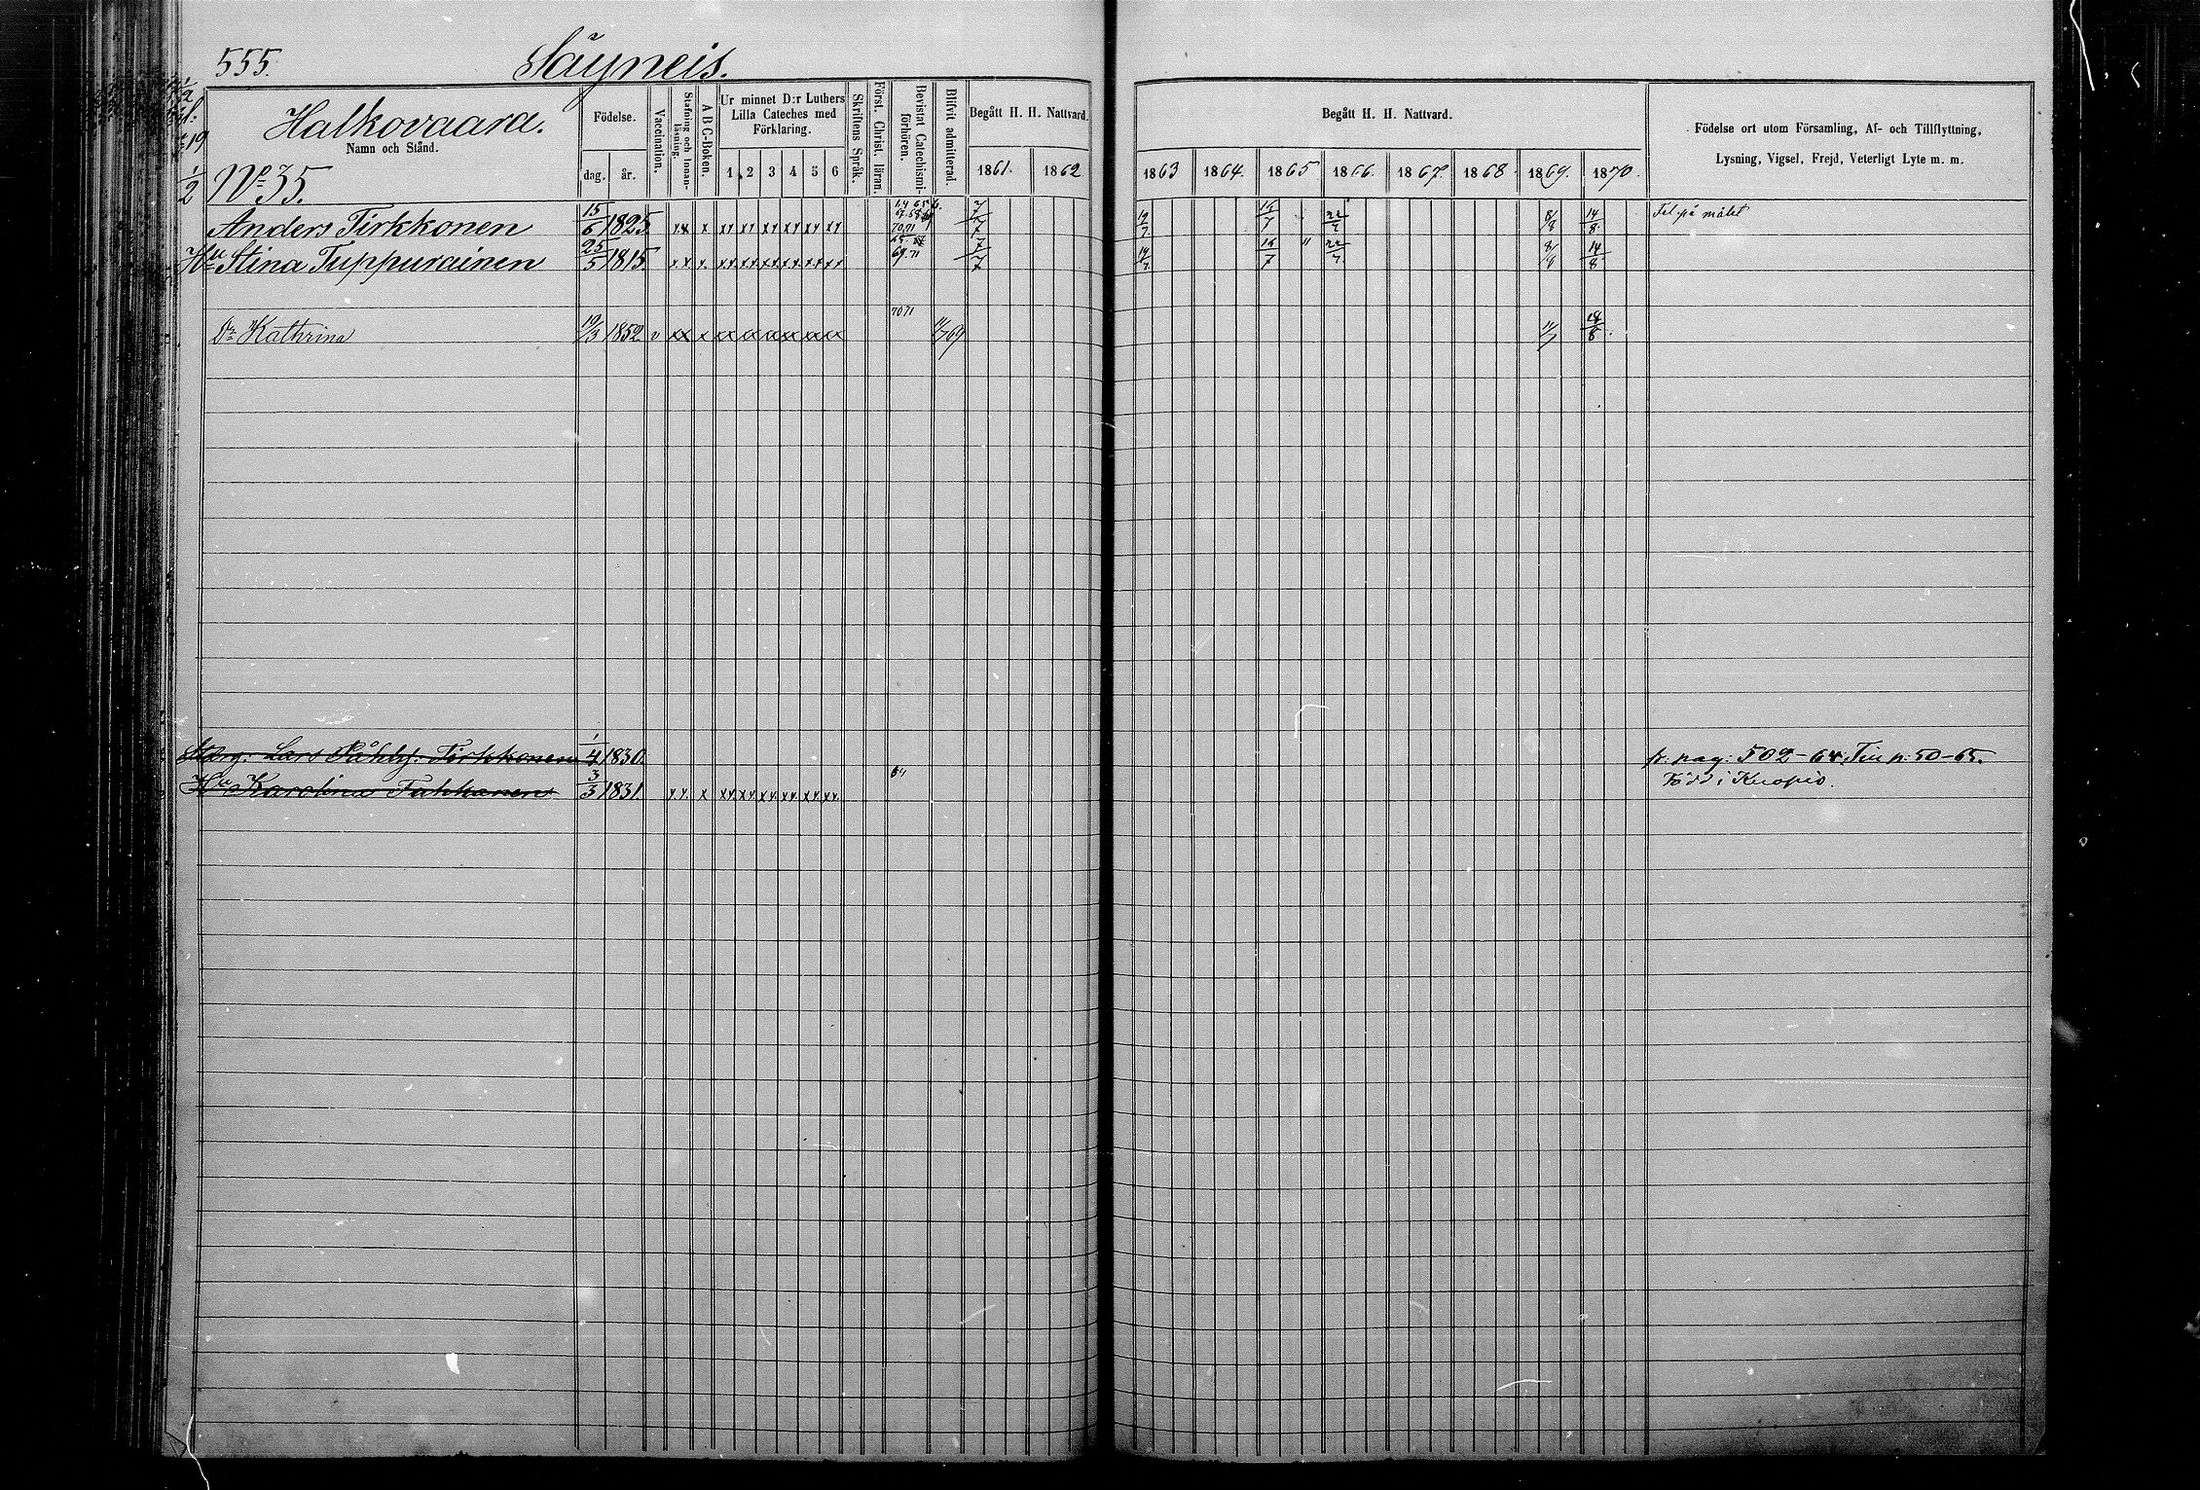 555.
Säyneis.
Halkovaara.
Namn och Stånd.
N:o 35.
Födelse.
dag. år.
Vaccination.
Stafning och Innanläsning.
A B C-Boken.
Ur minnet D:r Luthers
Lilla Cateches med
Förklaring.
1 2 3 4 5 6
Skriftens Språk.
Först. Christ. läran.
Bevistat Catechismiförhören.
Blifvit admitterad.
Begått H. H. Nattvard.
1861. 1862
Begått H. H. Nattvard.
1863 1864. 1865 1866. 1867. 1868. 1869. 1870.
Födelse ort utom Församling, Af- och Tillflyttning,
Lysning, Vigsel, Frejd, Veterligt Lyte m. m.
Anders Tirkkonen 15/6 1825. xx x xx xx xx xx xx xx 7/7 16/7 22/7 14/8 Fel på målet
Hu Stina Tuppurainen 25/5 1815. xx x xx xx xx xx xx xx 69.71 7/7 16/7 " 22/7 14/8
Dr Kathrina 19/3 1852. v xx x xx xx xx xx xx xx 70 71 18/8
Lars Påhlss. Tirkkonen 1/4 1830. fr. pag: 502-64. p: 50-65.
Hu Karolina 3/3 1831. xx x xx xx xx xx xx xx 64 Född i Kuopio.